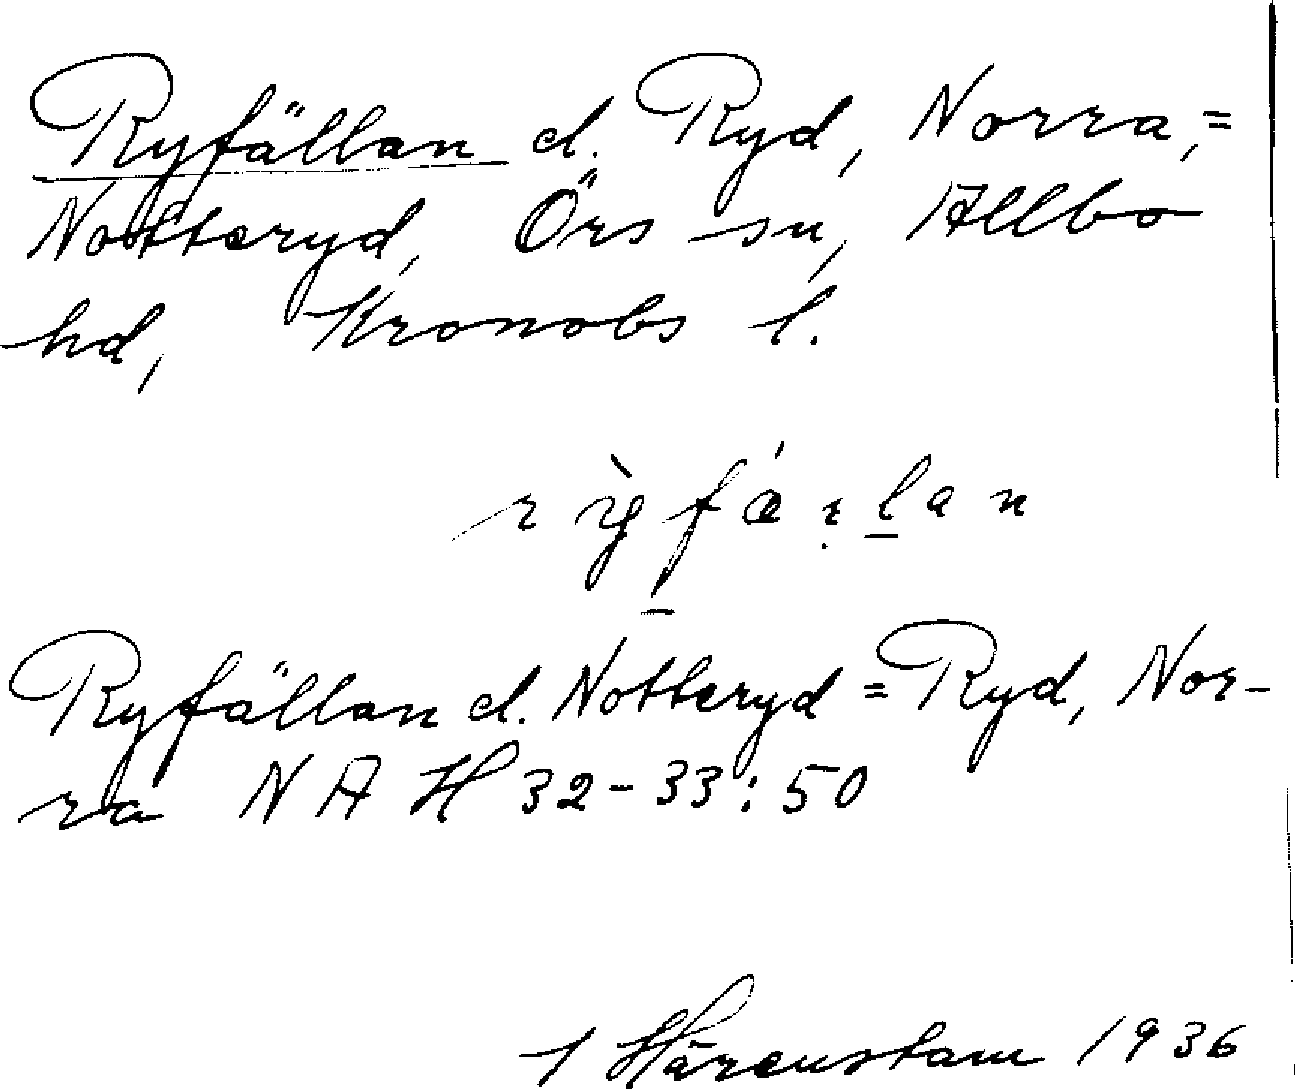 Ryfällan d. Ryd, Norra, =
Notteryd, Örs sn, Allbo
hd, Kronobs l.
rỳfǽṛlan
Ryfällan d. Notteryd = Ryd, Nor-
ra NAH 32-33:50
Hårenstam 1936